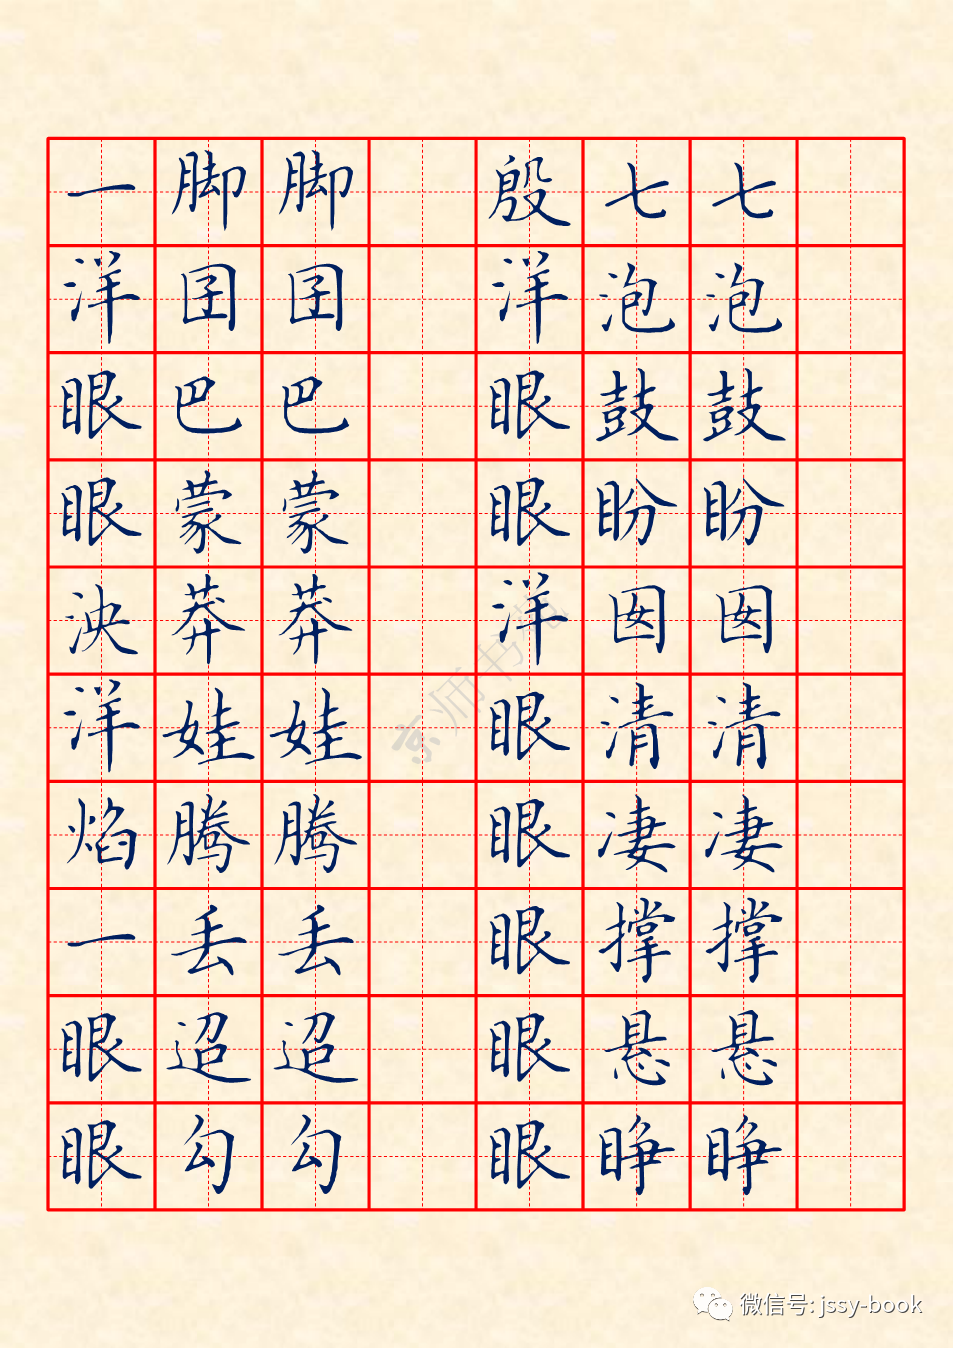 一 脚 脚 殷 七 七
洋 囝 囝 洋 泡 泡
眼 巴 巴 眼 鼓 鼓
眼 蒙 蒙 眼 盼 盼
泱 莽 莽 洋 囡 囡
洋 娃 娃 眼 清 清
焰 腾 腾 眼 凄 凄
一 丢 丢 眼 撑 撑
眼 迢 迢 眼 悬 悬
眼 勾 勾 眼 睁 睁
京师书苑
微信号: jssy-book